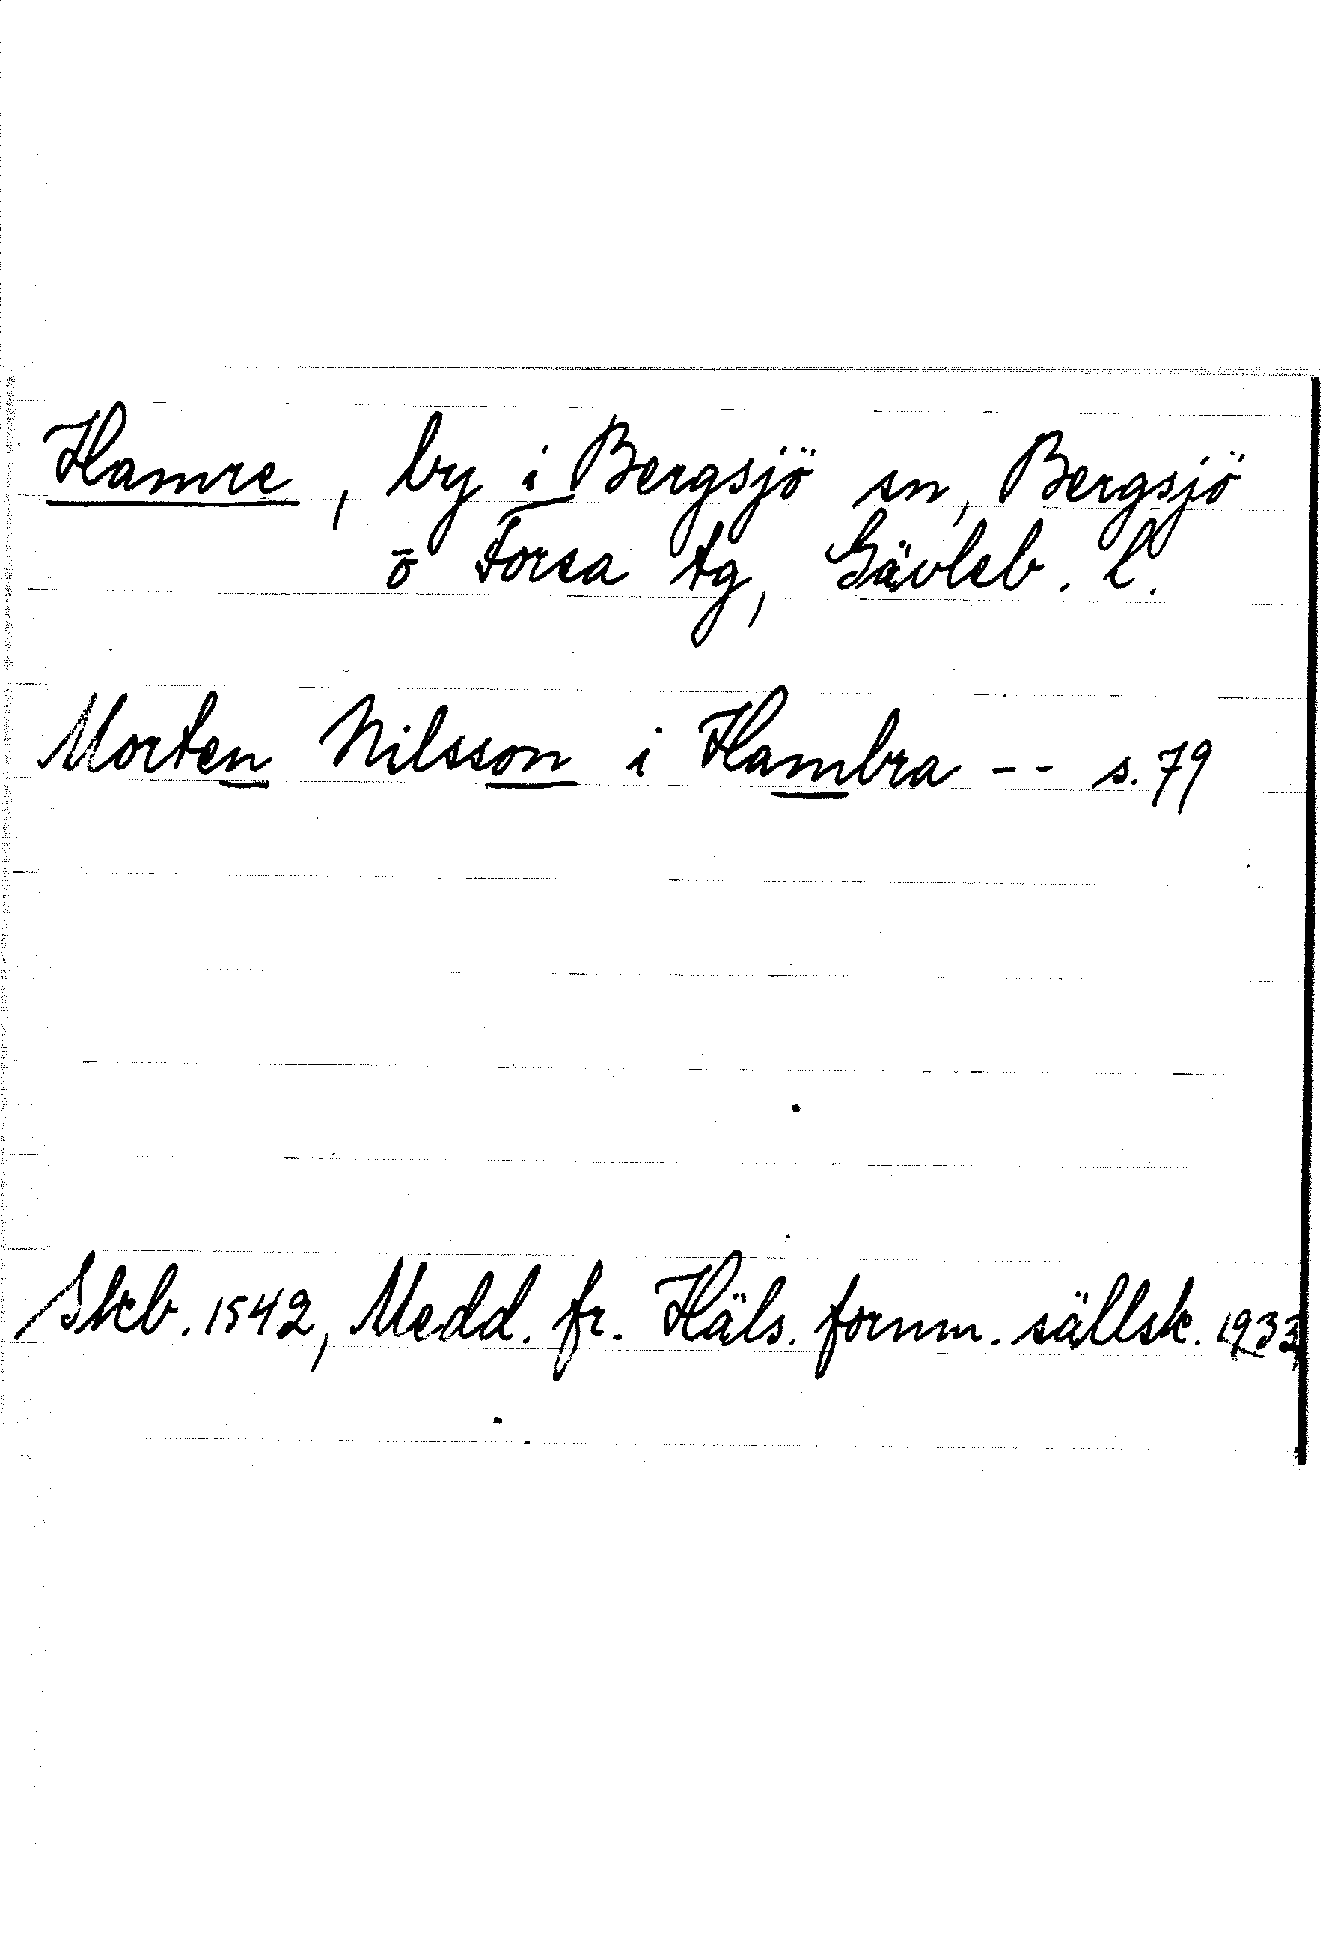 Hamre, by i Bergsjö sn, Bergsjö
o Forsa tg, Gävleb. l.
Morten Nilsson i Hambra -- s. 79
Skb. 1542, Medd. fr. Häls. fornm. sällsk. 1933